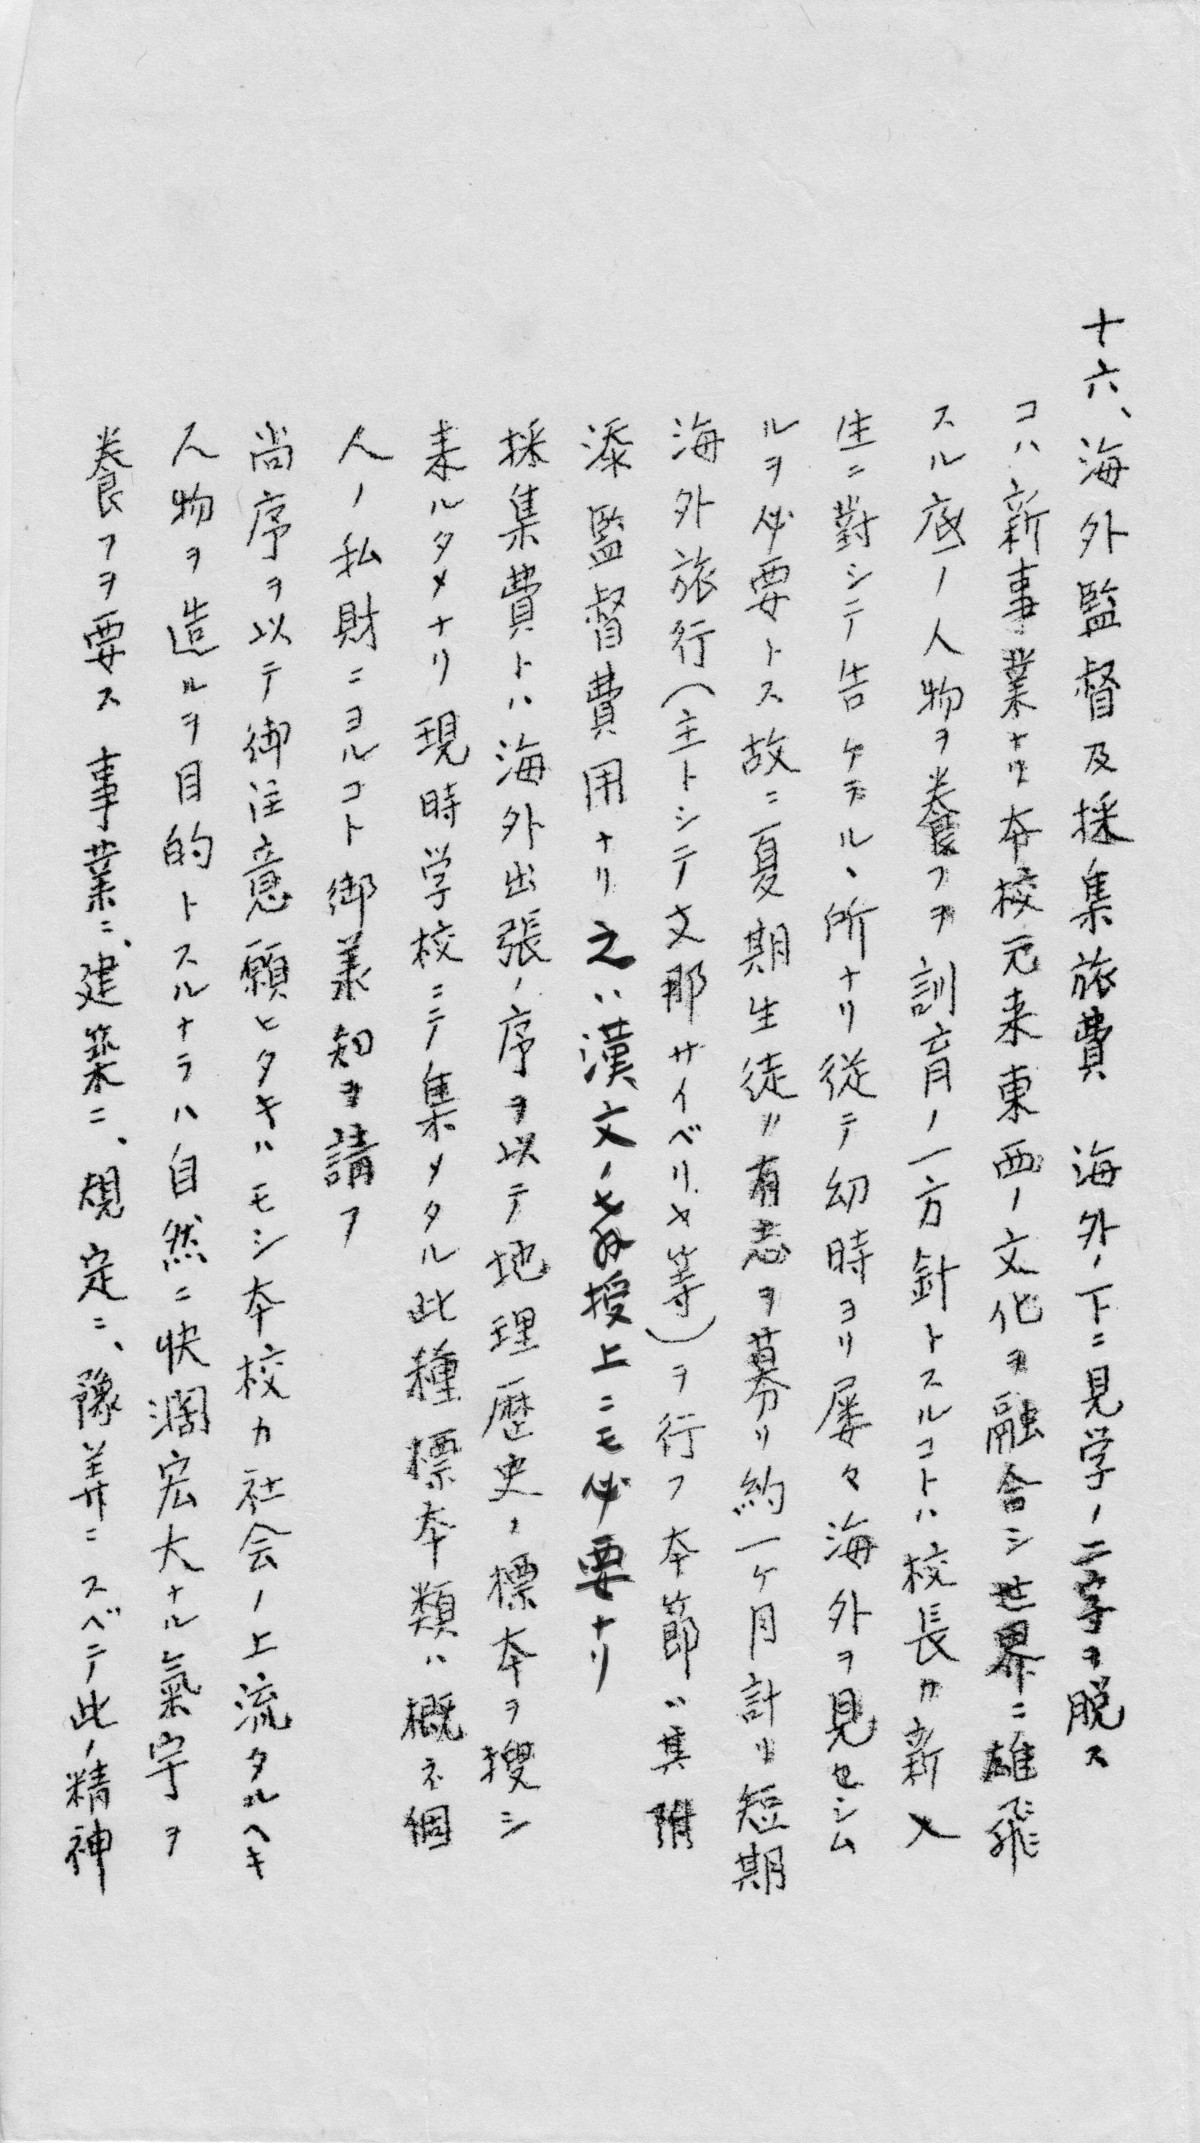 十六、海外監督及採集旅費　海外ノ下ニ見学ノ二字ヲ脱ス
コハ新事業ナリ本校元来東西ノ文化ヲ融合シ世界ニ雄飛
スル底ノ人物ヲ養フヲ訓育ノ一方針トスルコトハ校長カ新入
生ニ対シテ告ケラルヽ所ナリ従テ幼時ヨリ屡々海外ヲ見セシム
ルヲ必要トス故ニ夏期生徒ノ有志ヲ募リ約一ケ月計リ短期
海外旅行(主トシテ支那サイベリヤ等)ヲ行フ本節ハ其附
添監督費用ナリ之ハ漢文ノ教授上ニモ必要ナリ
採集費トハ海外出張ノ序ヲ以テ地理歴史ノ標本ヲ捜シ
来ルタメナリ現時学校ニテ集メタル此種標本類ハ概ネ個
人ノ私財ニヨルコト御義知ヲ請フ
尚序ヲ以テ御注意願ヒタキハモシ本校カ社会ノ上流タルヘキ
人物ヲ造ルヲ目的トスルナラハ自然ニ快濶宏大ナル氣宇ヲ
養フヲ要ス　事業ニ、建築ニ、規定ニ、豫算ニスベテ此ノ精神